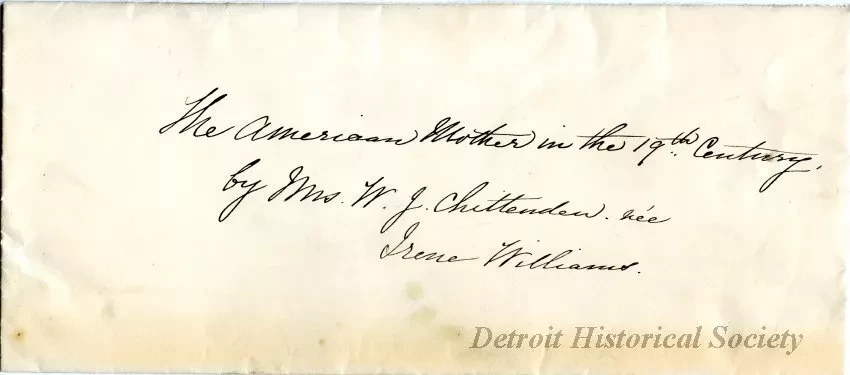 The American Mother in the 19th. Century.
by Mrs. W. J. Chittenden. née
Irene Williams.
Detroit Historical Society